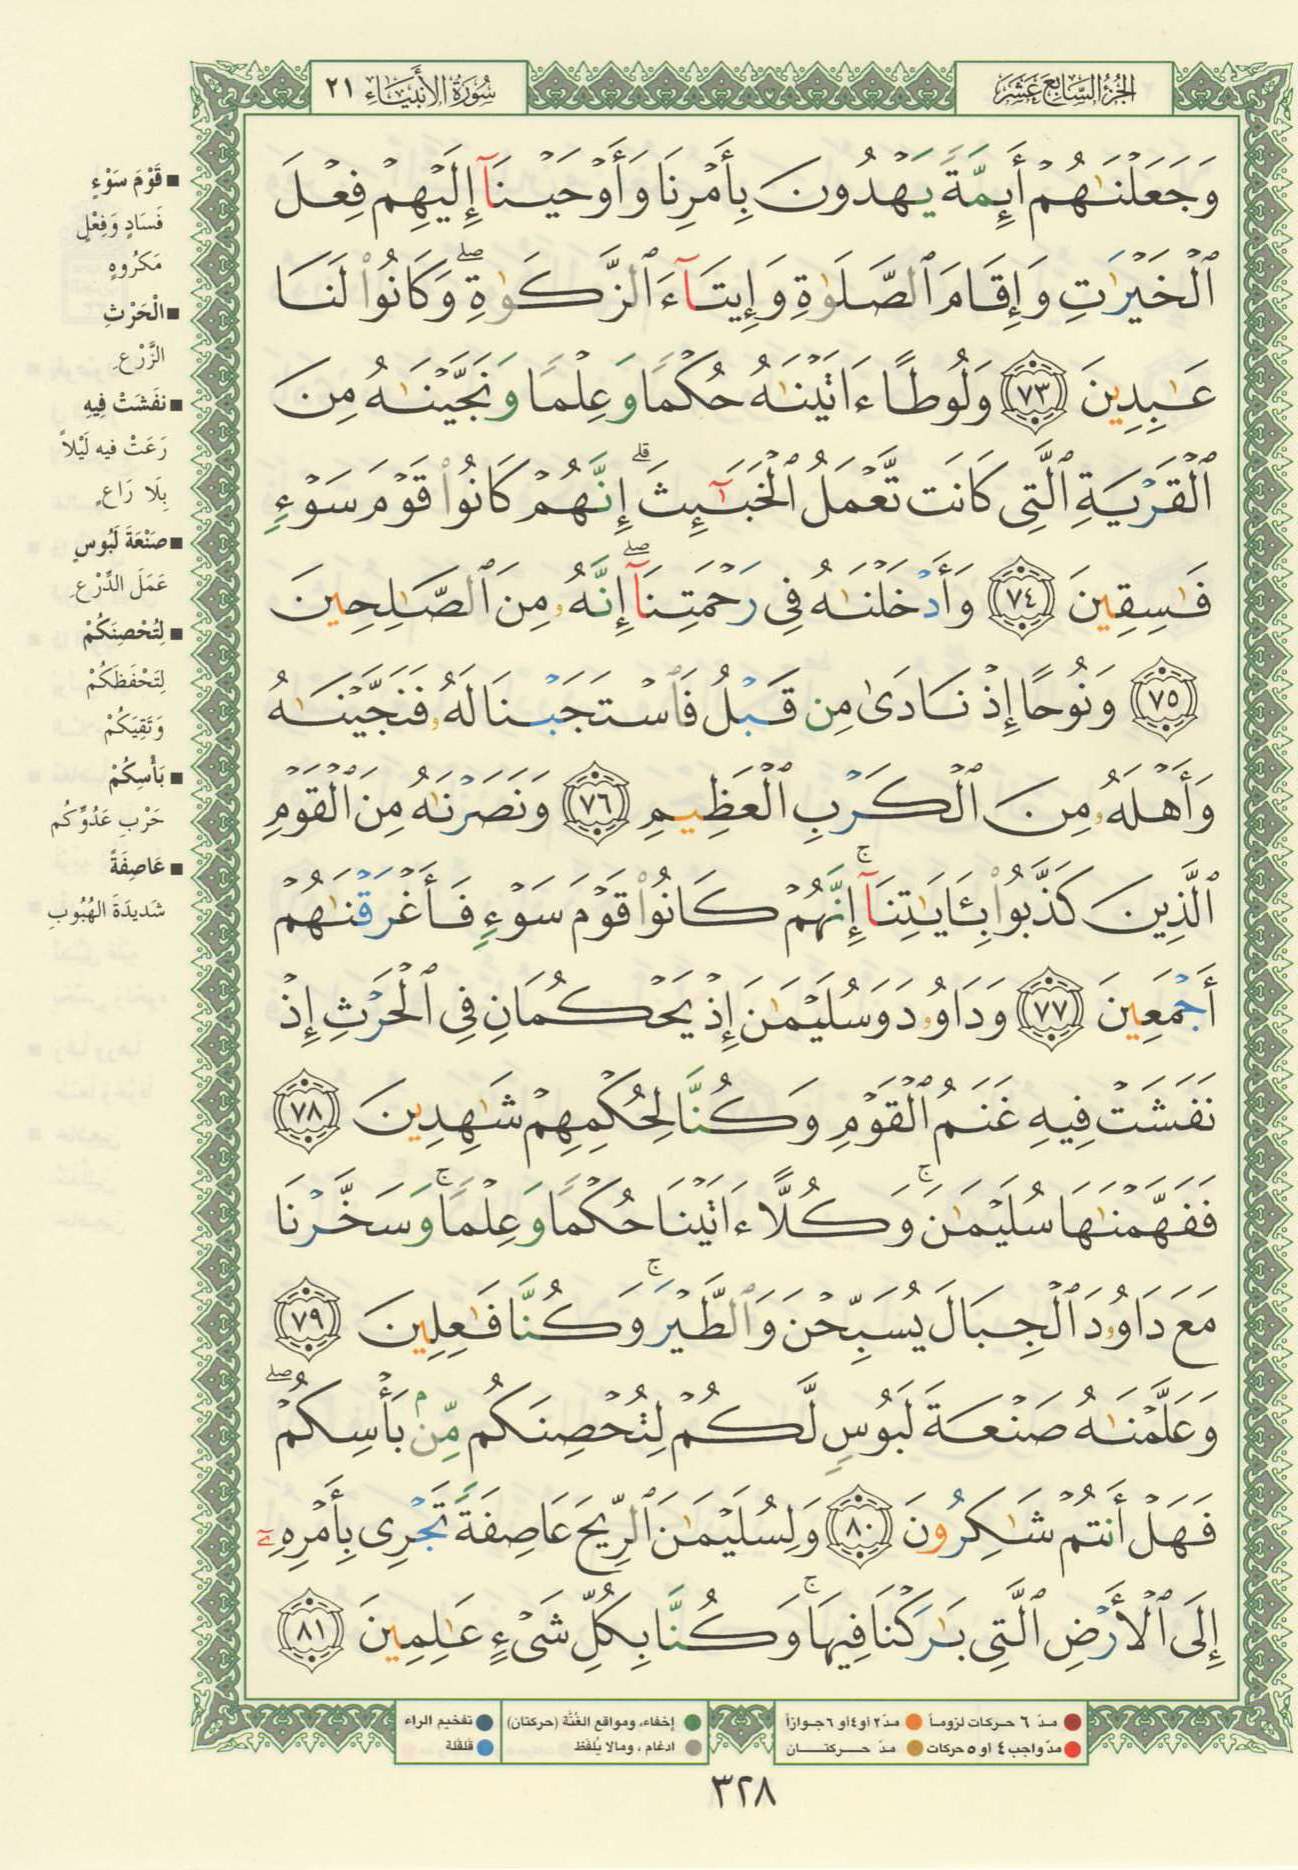 الجُزْءُ السَّابِعَ عَشَرَ
سُورَةُ الأَنْبِيَاءِ ٢١
وَجَعَلْنَٰهُمْ أَئِمَّةً يَهْدُونَ بِأَمْرِنَا وَأَوْحَيْنَآ إِلَيْهِمْ فِعْلَ
ٱلْخَيْرَٰتِ وَإِقَامَ ٱلصَّلَوٰةِ وَإِيتَآءَ ٱلزَّكَوٰةِۖ وَكَانُوا۟ لَنَا
عَٰبِدِينَ ﴿٧٣﴾ وَلُوطًا ءَاتَيْنَٰهُ حُكْمًا وَعِلْمًا وَنَجَّيْنَٰهُ مِنَ
ٱلْقَرْيَةِ ٱلَّتِى كَانَت تَّعْمَلُ ٱلْخَبَٰٓئِثَۗ إِنَّهُمْ كَانُوا۟ قَوْمَ سَوْءٍ
فَٰسِقِينَ ﴿٧٤﴾ وَأَدْخَلْنَٰهُ فِى رَحْمَتِنَآۖ إِنَّهُۥ مِنَ ٱلصَّٰلِحِينَ
﴿٧٥﴾ وَنُوحًا إِذْ نَادَىٰ مِن قَبْلُ فَٱسْتَجَبْنَا لَهُۥ فَنَجَّيْنَٰهُ
وَأَهْلَهُۥ مِنَ ٱلْكَرْبِ ٱلْعَظِيمِ ﴿٧٦﴾ وَنَصَرْنَٰهُ مِنَ ٱلْقَوْمِ
ٱلَّذِينَ كَذَّبُوا۟ بِـَٔايَٰتِنَآۚ إِنَّهُمْ كَانُوا۟ قَوْمَ سَوْءٍ فَأَغْرَقْنَٰهُمْ
أَجْمَعِينَ ﴿٧٧﴾ وَدَاوُۥدَ وَسُلَيْمَٰنَ إِذْ يَحْكُمَانِ فِى ٱلْحَرْثِ إِذْ
نَفَشَتْ فِيهِ غَنَمُ ٱلْقَوْمِ وَكُنَّا لِحُكْمِهِمْ شَٰهِدِينَ ﴿٧٨﴾
فَفَهَّمْنَٰهَا سُلَيْمَٰنَۚ وَكُلًّا ءَاتَيْنَا حُكْمًا وَعِلْمًاۚ وَسَخَّرْنَا
مَعَ دَاوُۥدَ ٱلْجِبَالَ يُسَبِّحْنَ وَٱلطَّيْرَۚ وَكُنَّا فَٰعِلِينَ ﴿٧٩﴾
وَعَلَّمْنَٰهُ صَنْعَةَ لَبُوسٍ لَّكُمْ لِتُحْصِنَكُم مِّنۢ بَأْسِكُمْۖ
فَهَلْ أَنتُمْ شَٰكِرُونَ ﴿٨٠﴾ وَلِسُلَيْمَٰنَ ٱلرِّيحَ عَاصِفَةً تَجْرِى بِأَمْرِهِۦٓ
إِلَى ٱلْأَرْضِ ٱلَّتِى بَٰرَكْنَا فِيهَاۚ وَكُنَّا بِكُلِّ شَىْءٍ عَٰلِمِينَ ﴿٨١﴾
■ قَوْمَ سَوْءٍ
فَسَادٍ وَفِعْلٍ
مَكْرُوهٍ
■ الْحَرْثِ
الزَّرْعِ
■ نَفَشَتْ فِيهِ
رَعَتْ فيه لَيْلاً
بِلَا رَاعٍ
■ صَنْعَةَ لَبُوسٍ
عَمَلَ الدِّرْعِ
■ لِتُحْصِنَكُمْ
لِتَحْفَظَكُمْ
وَتَقِيَكُمْ
■ بَأْسِكُمْ
حَرْبِ عَدُوِّكُم
■ عَاصِفَةً
شَديدَةَ الهُبُوبِ
مدّ ٦ حركات لزوماً ● مدّ ٢ أو ٤ أو ٦ جوازاً
مدّ واجب ٤ أو ٥ حركات ● مدّ حركتان
إخفاء، ومواقع الغُنَّة (حركتان) ● تفخيم الراء
ادغام ، ومالا يُلفَظ ● قلقلة
٣٢٨